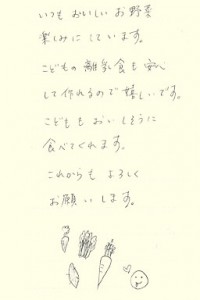 いつもおいしいお野菜
楽しみにしています。
こどもの離乳食も安心
して作れるので嬉しいです。
こどももおいしそうに
食べてくれます。
これからもよろしく
お願いします。